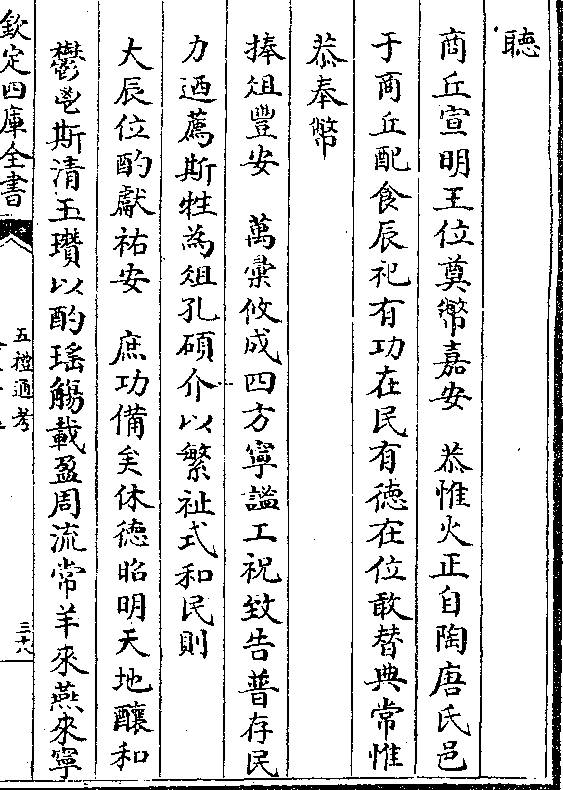 聽
商丘宣明王位奠幣嘉安　恭惟火正自陶唐氏邑
于商丘配食辰祀有功在民有德在位敢替典常惟
恭奉幣
捧俎豐安　萬彚攸成四方寧謐工祝致告普存民
力迺薦斯牲為俎孔碩介以繁祉式和民則
大辰位酌獻祐安　庶功備矣休德昭明天地釀和
鬱鬯斯清玉瓚以酌瑤觴載盈周流常羊來燕來寧
欽定四庫全書
五禮通考
三十八